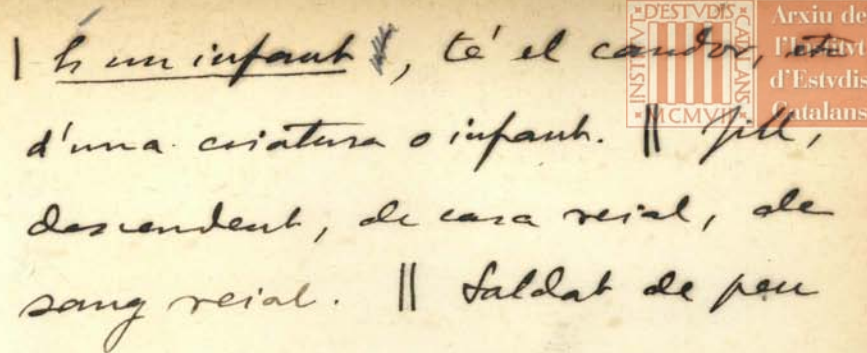 | És un infant, té el candor, etc
d'una criatura o infant. || Fill,
descendent, de casa reial, de
sang reial. || Soldat de peu
INSTITVT D'ESTVDIS CATALANS MCMVII
Arxiu de
l'Institvt
d'Estvdis
Catalans